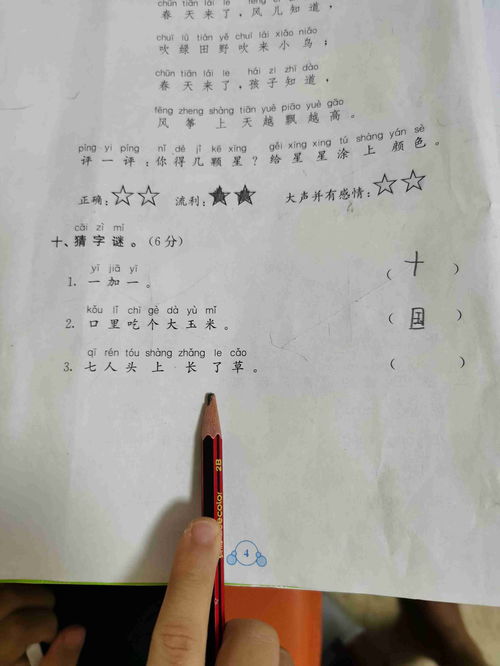 chūn tiān lái le
春天来了，风儿知道，
chuī lǜ tián yě chuī lái xiǎo niǎo
吹绿田野吹来小鸟；
chūn tiān lái le hái zi zhī dào
春天来了，孩子知道，
fēng zheng shàng tiān yuè piāo yuè gāo
风筝上天越飘越高。
píng yi píng nǐ dé jǐ kē xīng gěi xīng xing tú shàng yán sè
评一评：你得几颗星？给星星涂上颜色。
正确：☆☆ 流利：★★ 大声并有感情：☆☆
cāi zì mí
十、猜字谜。（6分）
yī jiā yī
1. 一加一。 （十）
kǒu lǐ chī gè dà yù mǐ
2. 口里吃个大玉米。 （国）
qī rén tóu shàng zhǎng le cǎo
3. 七人头上长了草。 （ ）
2B
4